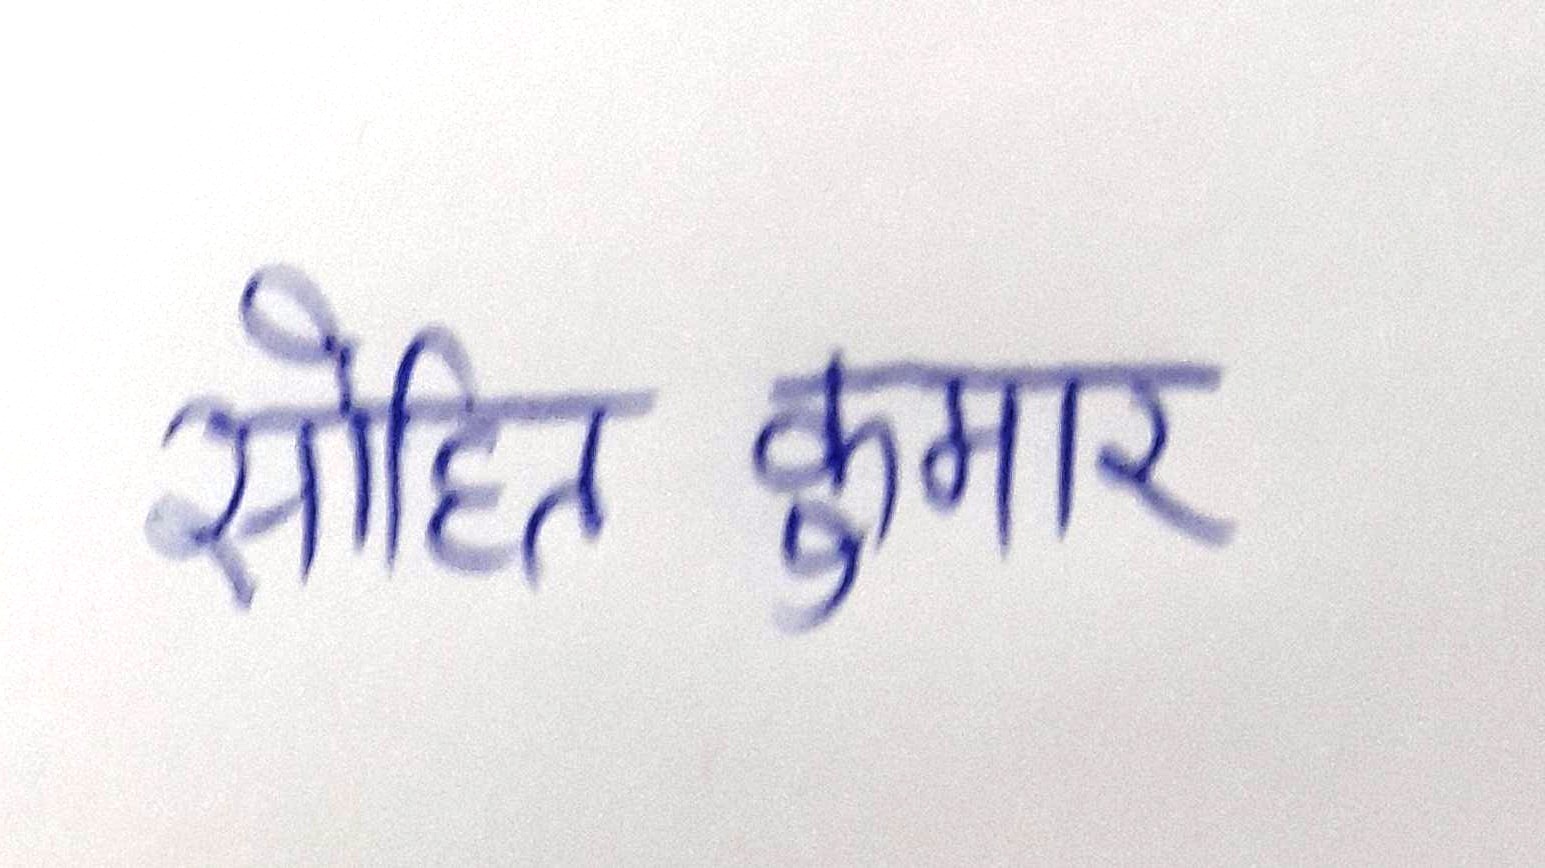 सोहित कुमार